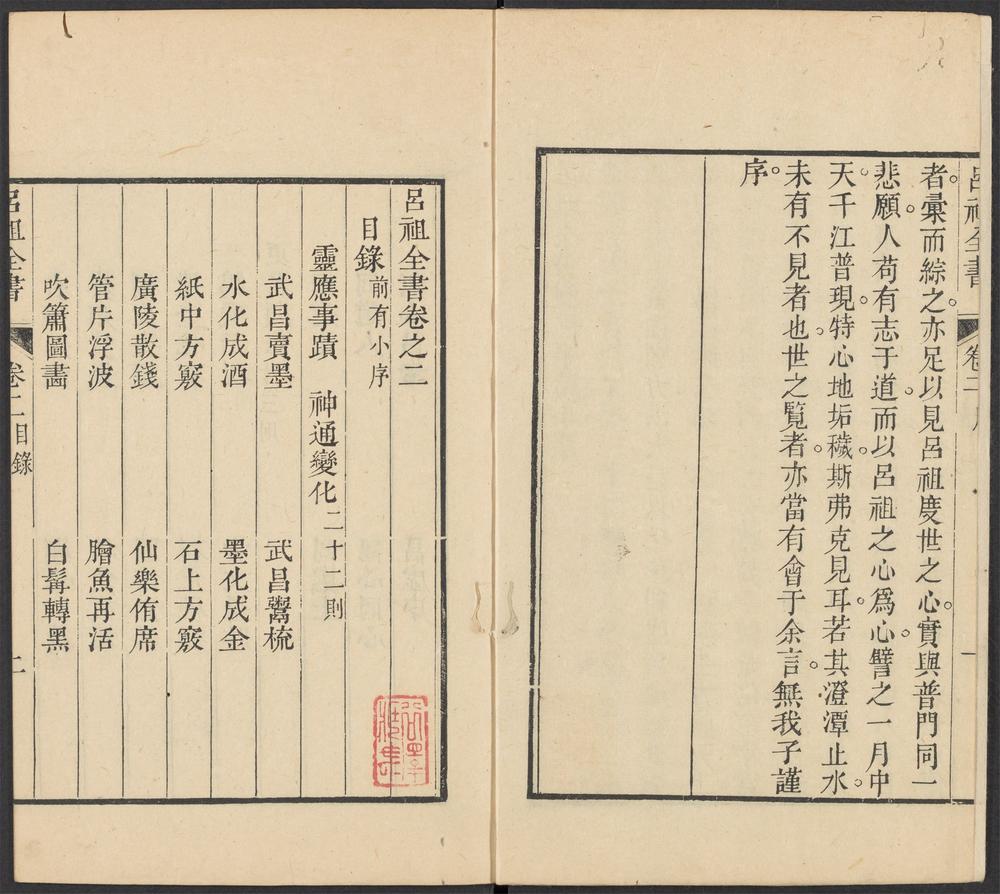 呂祖全書 卷二 序 一
者彙而綜之亦足以見呂祖度世之心實與普門同一
悲願人苟有志于道而以呂祖之心爲心譬之一月中
天千江普現特心地垢穢斯弗克見耳若其澄潭止水
未有不見者也世之覽者亦當有會于余言無我子謹
序
呂祖全書卷之二
目錄前有小序
靈應事蹟 神通變化二十二則
武昌賣墨 武昌鬻梳
水化成酒 墨化成金
紙中方竅 石上方竅
廣陵散錢 仙樂侑席
管片浮波 膾魚再活
吹簫圖畫 白髯轉黑
呂祖全書 卷二目錄 二